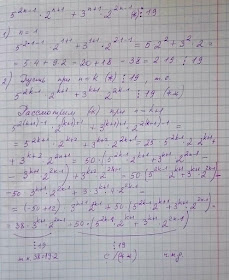 5^{2k-1}·2^{k+1} + 3^{k+1}·2^{2k-1} ⋮ 19
1) n=1
5^{2·1-1}·2^{1+1} + 3^{1+1}·2^{2·1-1} = 5·2² + 3²·2 =
= 5·4 + 9·2 = 20 + 18 = 38 = 2·19 ⋮ 19
2) Пусть при n=k (*) ⋮ 19, т.е.
5^{2k-1}·2^{k+1} + 3^{k+1}·2^{2k-1} ⋮ 19
Рассмотрим (*) при n=k+1
5^{2(k+1)-1}·2^{(k+1)+1} + 3^{(k+1)+1}·2^{2(k+1)-1} =
= 5^{2k+1}·2^{k+2} + 3^{k+2}·2^{2k+1} = 25·5^{2k-1}·2·2^{k+1} +
+ 3^{k+2}·2^{2k+1} = 50·(5^{2k-1}·2^{k+1} + 3^{k+1}·2^{2k-1} -
- 3^{k+1}·2^{2k-1}) +
- 50·3^{k+1}·2^{2k-1}
= (-50+12)·3^{k+1}·2^{2k-1} + 50·(5^{2k-1}·2^{k+1} + 3^{k+1}·2^{2k-1}) =
= -38·3^{k+1}·2^{2k-1} + 50·(5^{2k-1}·2^{k+1} + 3^{k+1}·2^{2k-1})
⋮ 19 ⋮ 19
ч.т.д.